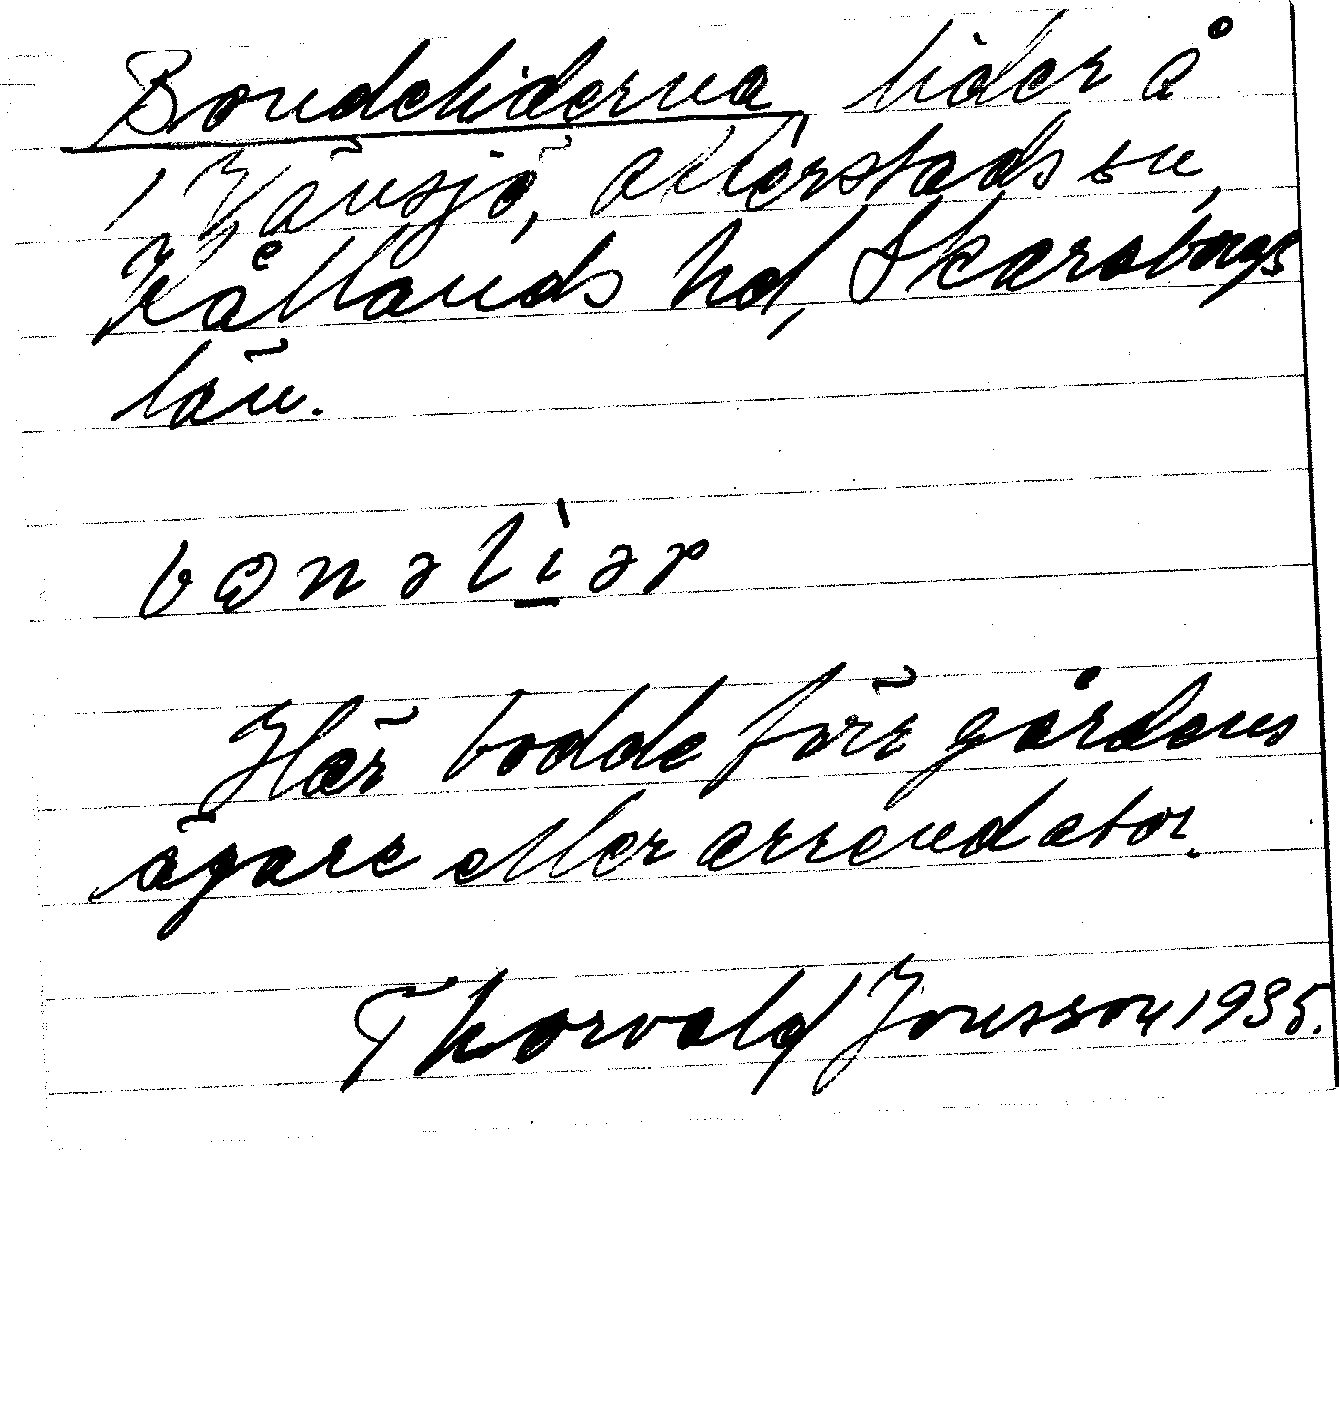 Bondeliderna, lider å
1 Vänsjö, Otterstads sn,
Kållands hd, Skaraborgs
län.
bɷnəlìər
Här bodde förr gårdens
ägare eller arrendator.
Thorvald Jonsson 1935.